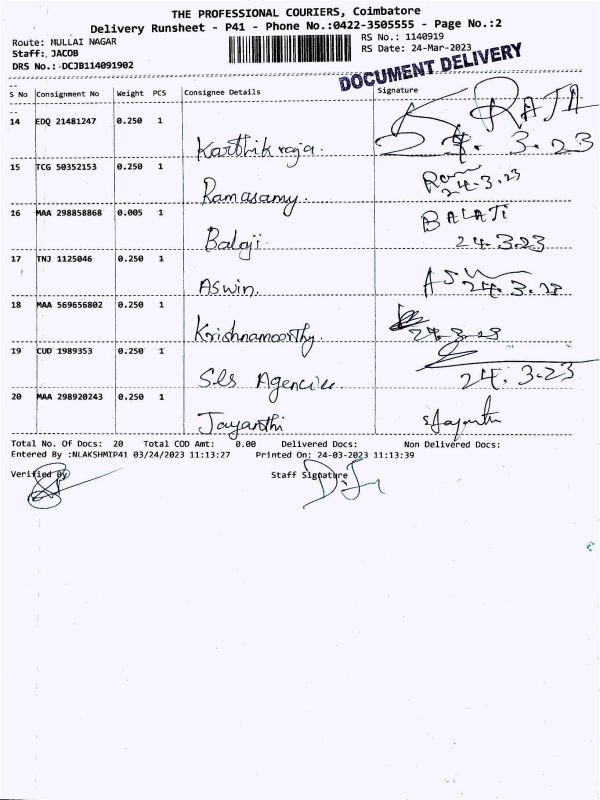 THE PROFESSIONAL COURIERS, Coimbatore
Delivery Runsheet - P41 - Phone No.:0422-3505555 - Page No.:2
Route: MULLAI NAGAR RS No.: 1140919
Staff: JACOB RS Date: 24-Mar-2023
DRS No.: DCJB114091902
DOCUMENT DELIVERY
S No Consignment No Weight PCS Consignee Details Signature
14 EDQ 21481247 0.250 1 Karthik raja. RAJA 24.3.23
15 TCG 50352153 0.250 1 Ramasamy. 24-3.23
16 MAA 298858868 0.005 1 Balaji. BALAJI 24.3.23
17 TNJ 1125046 0.250 1 Aswin. 24.3.23
18 MAA 569656802 0.250 1 Krishnamoorthy. 24.3.23
19 CUD 1989353 0.250 1 Sls Agencies. 24.3.23
20 MAA 298920243 0.250 1 Jayanthi
Total No. Of Docs: 20 Total COD Amt: 0.00 Delivered Docs: Non Delivered Docs:
Entered By :NLAKSHMIP41 03/24/2023 11:13:27 Printed On: 24-03-2023 11:13:39
Verified By Staff Signature